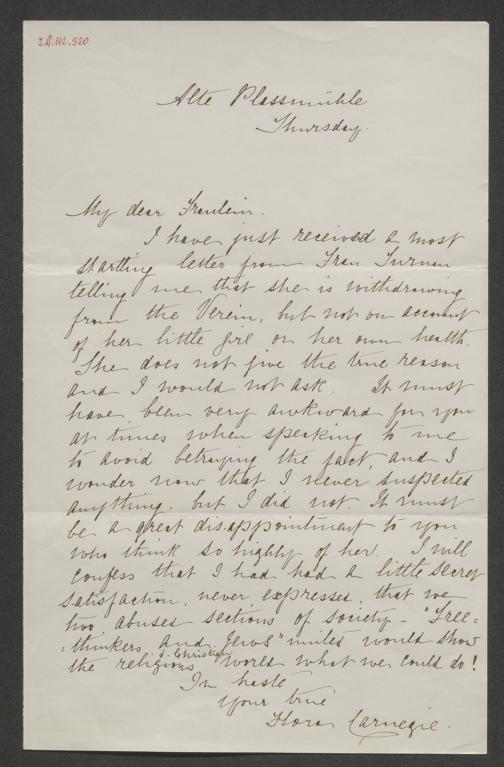 Alte Plassmühle
Thursday.
My dear Fraulein.
I have just received a most
startling letter from Frau
telling me that she is withdrawing
from the Verein, but not on account
of her little girl or her own health.
She does not give the true reason
and I would not ask. It must
have been very awkward for you
at times when speaking to me
to avoid betraying the fact, and I
wonder now that I never suspected
anything. but I did not. It must
be a great disappointment to you
who think so highly of her. I will
confess that I had had a little secret
satisfaction, never expressed, that we
two abused sections of society - "Free=
=thinkers and Jews" united would show
the religious & Christian world what we could do!
In haste
Your true
Flora Carnegie.